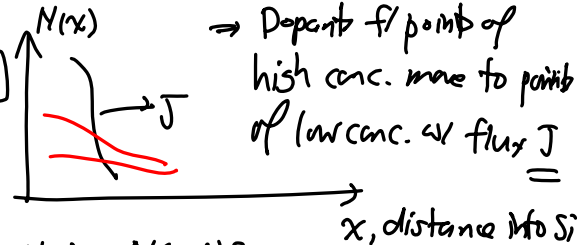 N(x)
⇒ Dopants f/ points of
high conc. move to points
→ J
of low conc. w/ flux J
x, distance into Si